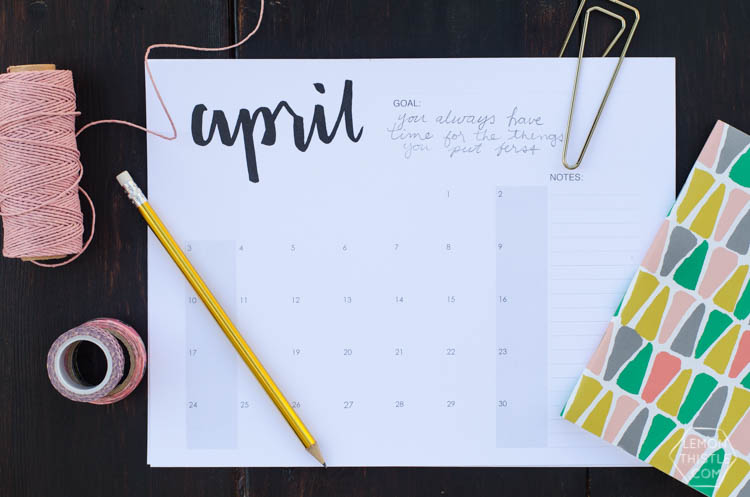 april
GOAL:
you always have
time for the things
you put first
NOTES:
1 2
3 4 5 6 7 8 9
10 11 12 13 14 15 16
17 19 20 21 22 23
24 25 26 27 28 29 30
LEMON
THISTLE
.COM